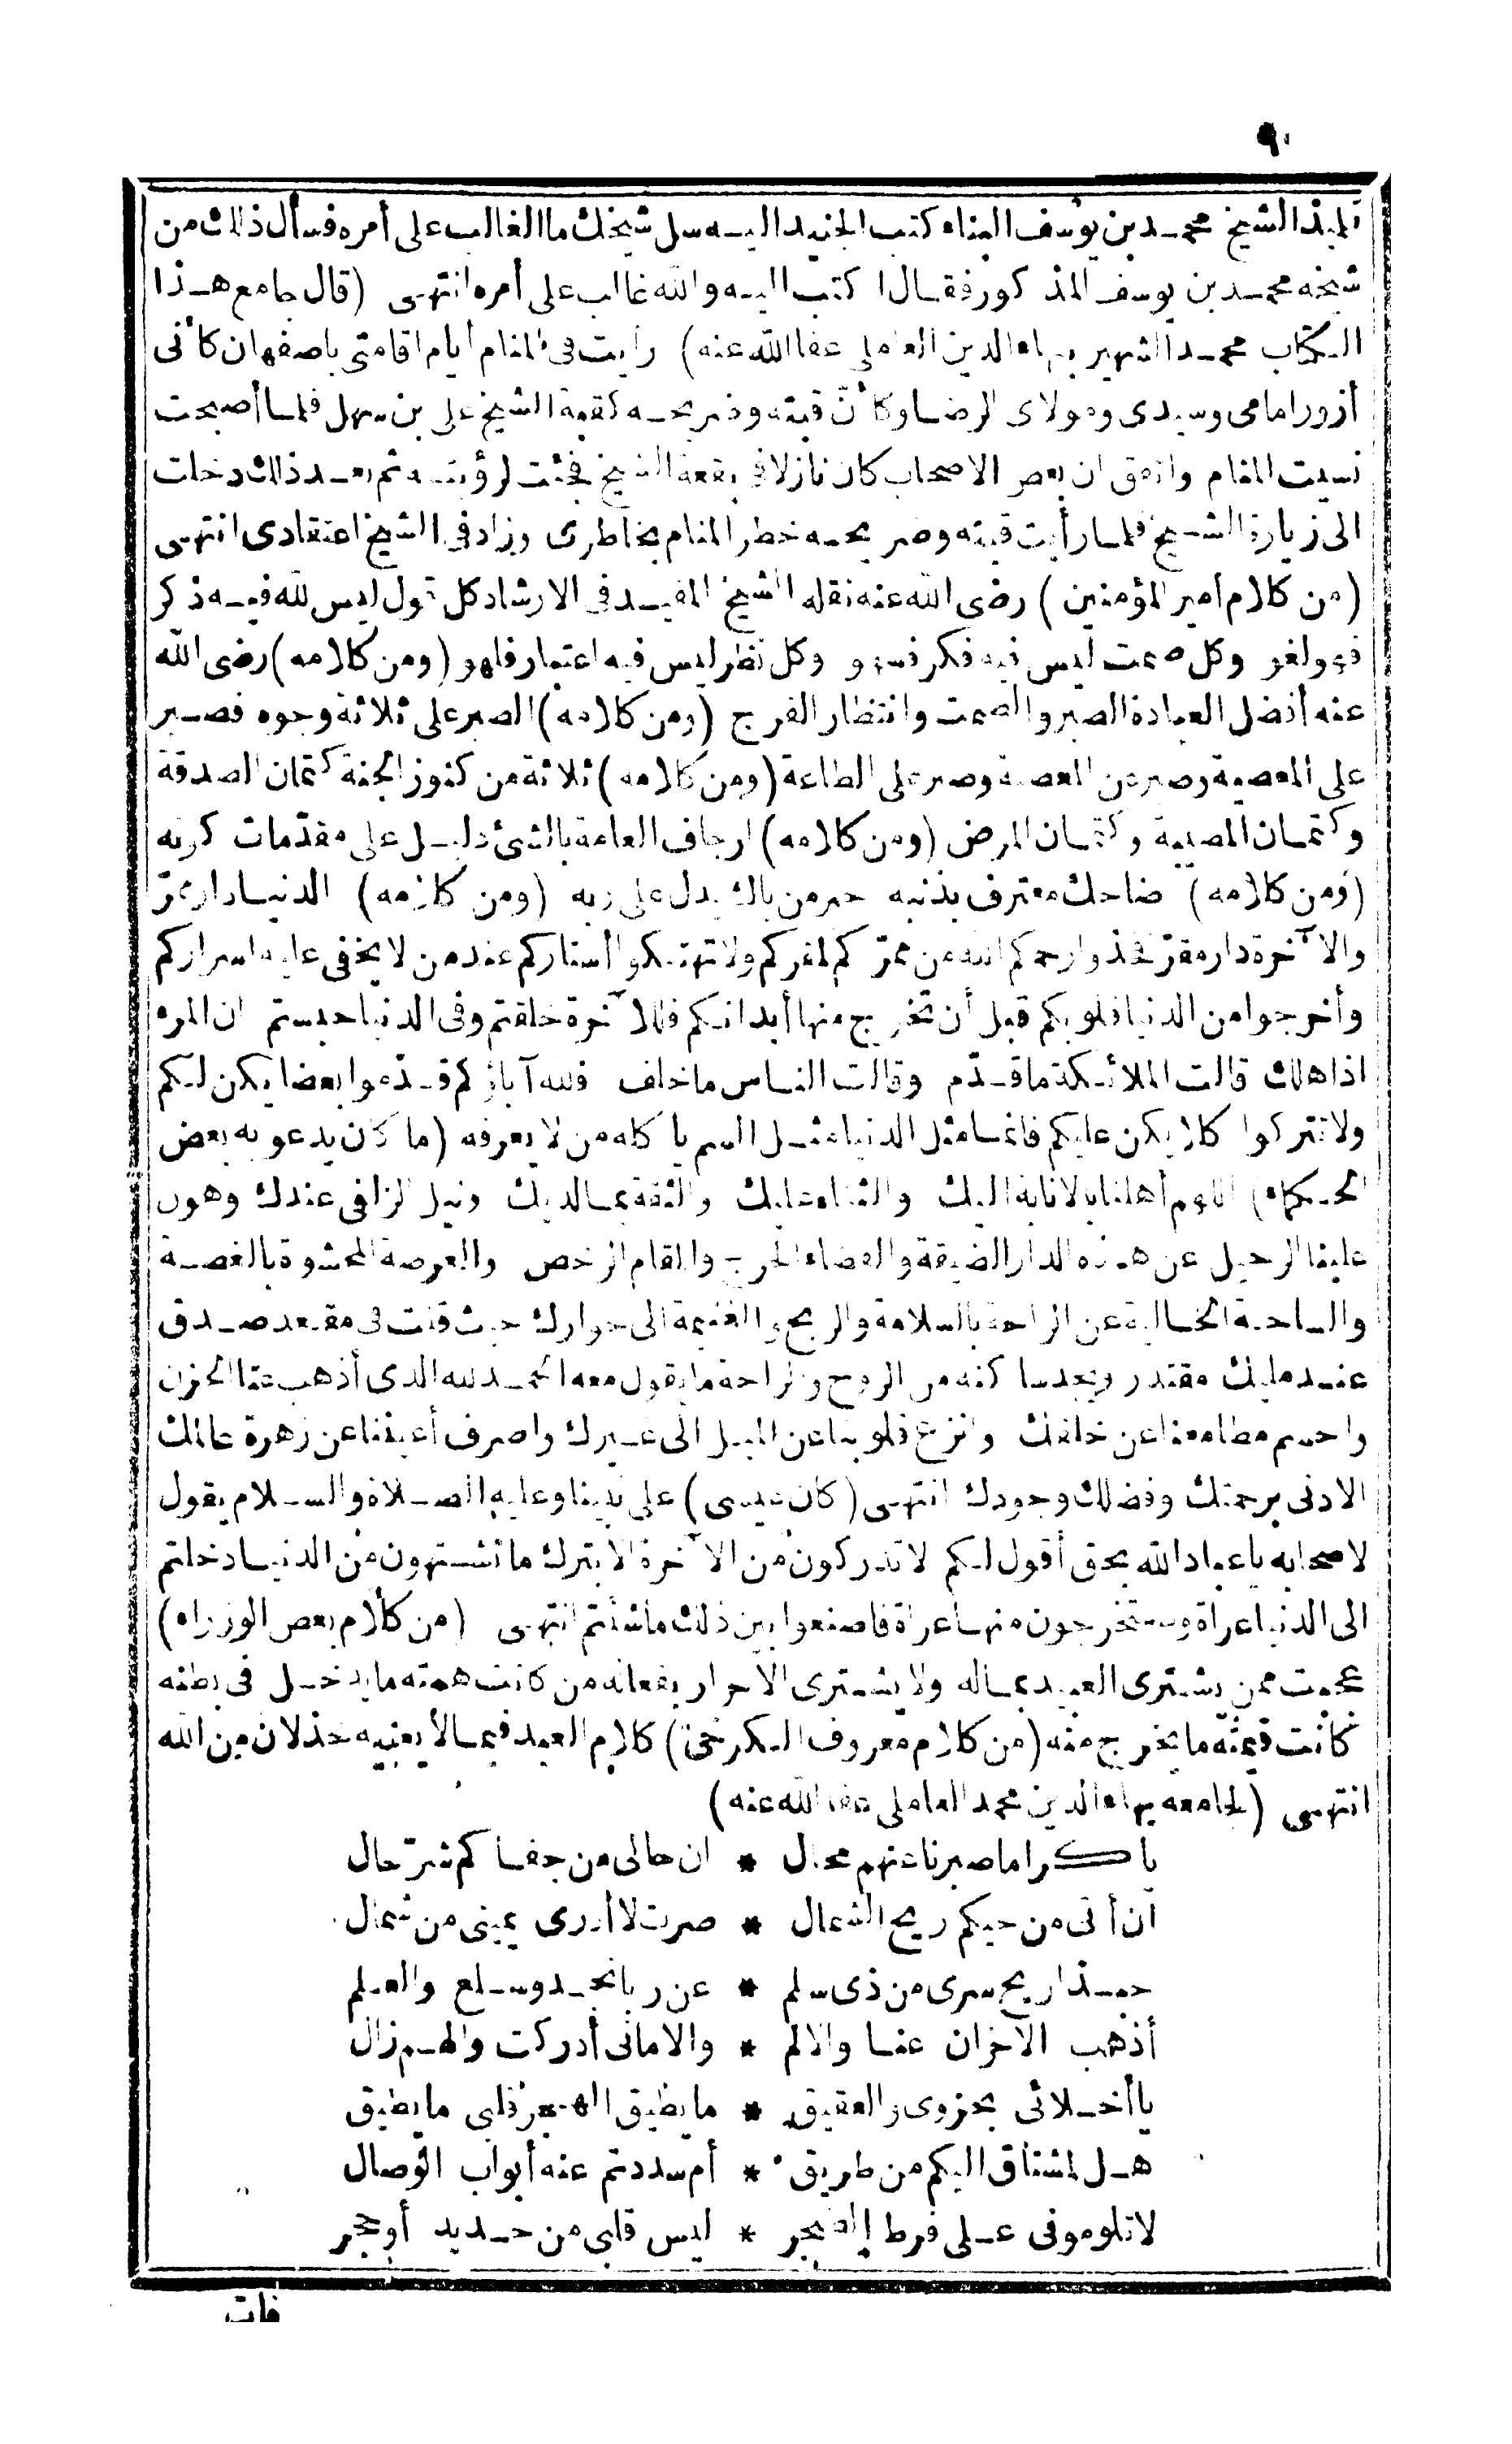 ٩٠
تلميذ الشيخ محمد بن يوسف البناء كتب الجنيد اليه سل شيخك ما الغالب على أمره فسأل ذلك من
شيخه محمد بن يوسف المذكور فقال اكتب اليه والله غالب على أمره انتهى (قال جامع هذا
الكتاب محمد الشهير ببهاء الدين العاملي عفا الله عنه) رأيت في المنام أيام اقامتي باصفهان كأني
أزور امامي وسيدي ومولاي الرضا وكأن قبته وضريحه كقبة الشيخ علي بن سهل فلما أصبحت
نسيت المنام واتفق ان بعض الاصحاب كان نازلا في بقعة الشيخ فجئت لرؤيته ثم بعد ذلك دخلت
الى زيارة الشيخ فلما رأيت قبته وضريحه خطر المنام بخاطري وزاد في الشيخ اعتقادي انتهى
(من كلام أمير المؤمنين) رضى الله عنه نقله الشيخ المفيد في الارشاد كل قول ليس لله فيه ذكر
فهو لغو وكل صمت ليس فيه فكر فسهو وكل نظر ليس فيه اعتبار فلهو (ومن كلامه) رضى الله
عنه أفضل العبادة الصبر والصمت وانتظار الفرج (ومن كلامه) الصبر على ثلاثة وجوه فصبر
على المعصية وصبر عن المعصية وصبر على الطاعة (ومن كلامه) ثلاثة من كنوز الجنة كتمان الصدقة
وكتمان المصيبة وكتمان المرض (ومن كلامه) ارجاف العامة بالشئ دليل على مقدّمات كونه
(ومن كلامه) ضاحك معترف بذنبه خير من باك يدل على ربه (ومن كلامه) الدنيا دار ممرّ
والآخرة دار مقرّ فخذوا رحمكم الله من ممرّكم لمقركم ولا تهتكوا أستاركم عند من لا يخفى عليه اسراركم
وأخرجوا من الدنيا قلوبكم قبل أن تخرج منها أبدانكم فللآخرة خلقتم وفي الدنيا حبستم ان المرء
اذا هلك قالت الملائكة ما قدّم وقالت الناس ما خلف فلله آباؤكم قدّموا بعضا يكن لكم
ولا تتركوا كلا يكن عليكم فانما مثل الدنيا مثل السم يأكله من لا يعرفه (ما كان يدعو به بعض
الحكماء) اللهم أهلنا بالانابة اليك والثناء عليك والثقة بما لديك ونيل الزلفى عندك وهون
علينا الرحيل عن هذه الدار الضيقة والفضاء الحرج والمقام الرخص والعرصة المحشوة بالغصة
والساحة الخالية عن الراحة بالسلامة والربح والغنيمة الى جوارك حيث قلت في مقعد صدق
عند مليك مقتدر ويجد ساكنه من الروح والراحة ما يقول معه الحمد لله الذي أذهب عنا الحزن
واحسم مطامعنا عن خلقك وانزع قلوبنا عن الميل الى غيرك واصرف أعيننا عن زهرة عالمك
الادنى برحمتك وفضلك وجودك انتهى (كان عيسى) على نبينا وعليه الصلاة والسلام يقول
لاصحابه يا عباد الله بحق أقول لكم لا تدركون من الآخرة الا بترك ما تشتهون من الدنيا دخلتم
الى الدنيا عراة وستخرجون منها عراة فاصنعوا بين ذلك ما شئتم انتهى (من كلام بعض الوزراء)
عجبت ممن يشترى العبيد بماله ولا يشترى الأحرار بفعاله من كانت همته ما يدخل في بطنه
كانت قيمته ما يخرج منه (من كلام معروف الكرخي) كلام العبد فيما لا يعنيه خذلان من الله
انتهى (لجامعه بهاء الدين محمد العاملي عفا الله عنه)
يا كراما صبرنا عنهم محال * ان حالى من جفاكم شرّ حال
ان أتى من حيكم ريح الشمال * صرت لا أدرى يمينى من شمال
حبذا ريح سرى من ذى سلم * عن ربا نجد وسلع والعلم
أذهب الاحزان عنا والالم * والامانى أدركت والهم زال
يا أخلائى بحزوى والعقيق * ما يطيق الهجر قلبى ما يطيق
هل لمشتاق اليكم من طريق * أم سددتم عنه أبواب الوصال
لا تلومونى على فرط الضجر * ليس قلبى من حديد أو حجر
فات